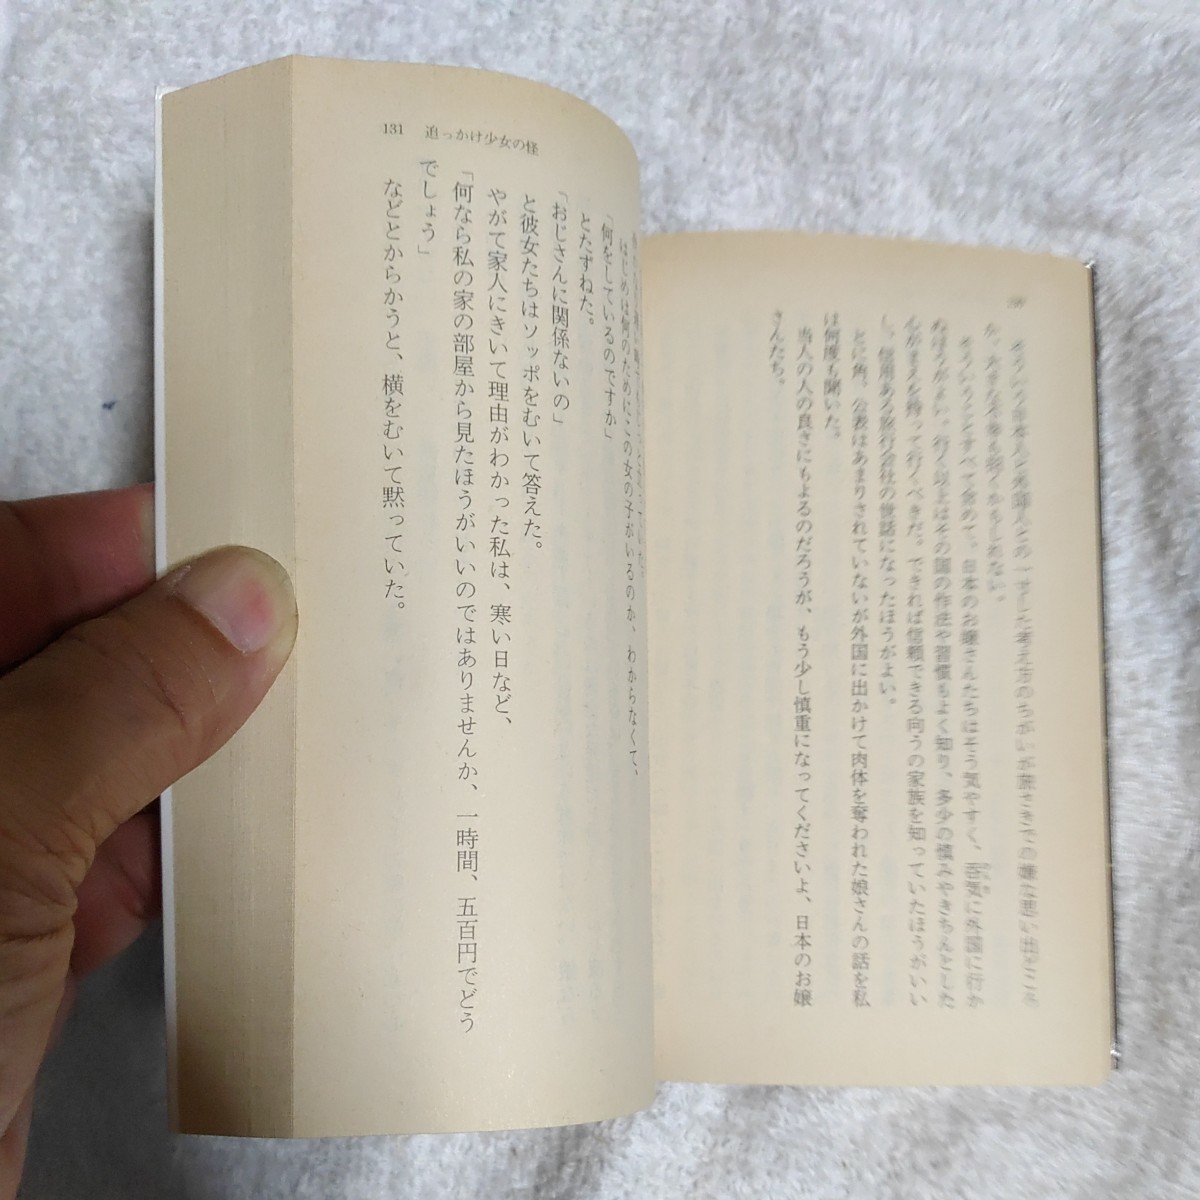 そういう日本人と外国人との一寸した考え方のちがいが旅さきでの嫌な思い出どころ
か、大きな不幸を招くかもしれない。
そういうとすべて、日本のお嬢さんたちはそう気やすく、呑気に外国に行か
ぬほうがよい。行く以上はその国の作法や習慣もよく知り、多少の慎みやきちんとした
心がまえを持って行くべきだ。できれば信頼できる向うの家族を知っていたほうがいい
し、信用ある旅行会社の世話になったほうがよい。
とに角、公表はあまりされていないが外国に出かけて肉体を奪われた娘さんの話を私
は何度も聞いた。
当人の人の良さにもよるのだろうが、もう少し慎重になってくださいよ、日本のお嬢
さんたち。
131 追っかけ少女の怪
はじめは何のためにこの女の子がいるのか、わからなくて、
「何をしているのですか」
とたずねた。
「おじさんに関係ないの」
と彼女たちはソッポをむいて答えた。
やがて家人にきいて理由がわかった私は、寒い日など、
「何なら私の家の部屋から見たほうがいいのではありませんか、一時間、五百円でどう
でしょう」
などとからかうと、横をむいて黙っていた。